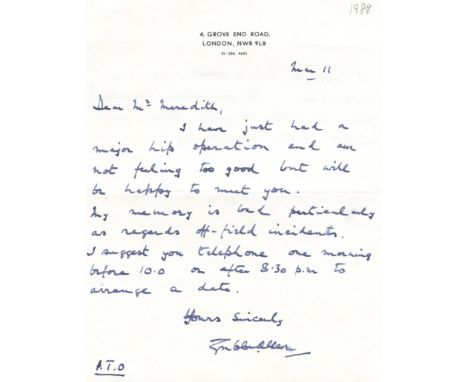 1988
4, GROVE END ROAD,
LONDON, NW8 9LB
01-286 4601
Mar 11
Dear Mr Meredith,
I have just had a
major hip operation and am
not feeling too good but will
be happy to meet you.
My memory is bad particularly
as regards off-field incidents.
I suggest you telephone one morning
before 10.0 or after 8.30 p.m to
arrange a date.
Yours Sincerely
Gubby Allen
P.T.O